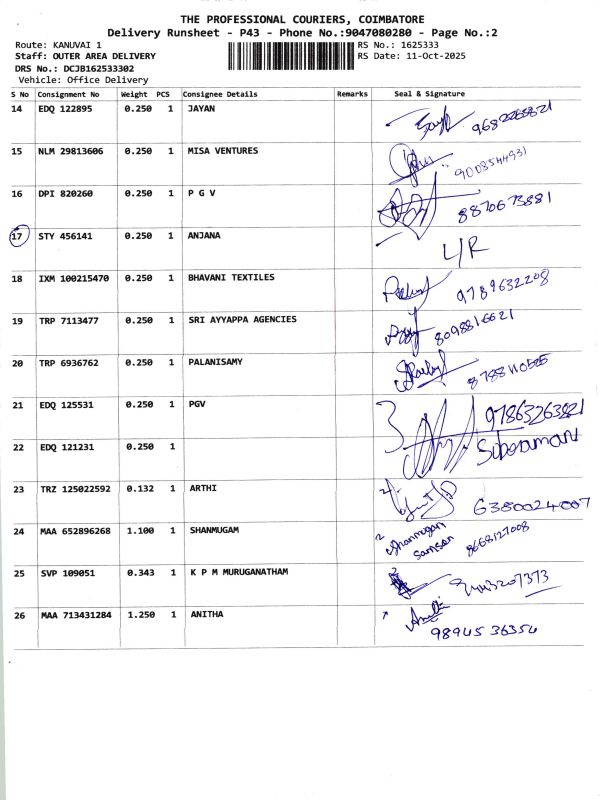 THE PROFESSIONAL COURIERS, COIMBATORE
Delivery Runsheet - P43 - Phone No.:9047080280 - Page No.:2
Route: KANUVAI 1 RS No.: 1625333
Staff: OUTER AREA DELIVERY RS Date: 11-Oct-2025
DRS No.: DCJB162533302
Vehicle: Office Delivery
S No Consignment No Weight PCS Consignee Details Remarks Seal & Signature
14 EDQ 122895 0.250 1 JAYAN
15 NLM 29813606 0.250 1 MISA VENTURES
9008544931
16 DPI 820260 0.250 1 P G V
8870673881
17 STY 456141 0.250 1 ANJANA
L/R
18 IXM 100215470 0.250 1 BHAVANI TEXTILES
9789632208
19 TRP 7113477 0.250 1 SRI AYYAPPA AGENCIES
20 TRP 6936762 0.250 1 PALANISAMY
21 EDQ 125531 0.250 1 PGV
22 EDQ 121231 0.250 1
23 TRZ 125022592 0.132 1 ARTHI
6380024007
24 MAA 652896268 1.100 1 SHANMUGAM
Shanmugan
8668127008
25 SVP 109051 0.343 1 K P M MURUGANATHAM
26 MAA 713431284 1.250 1 ANITHA
98945 36354